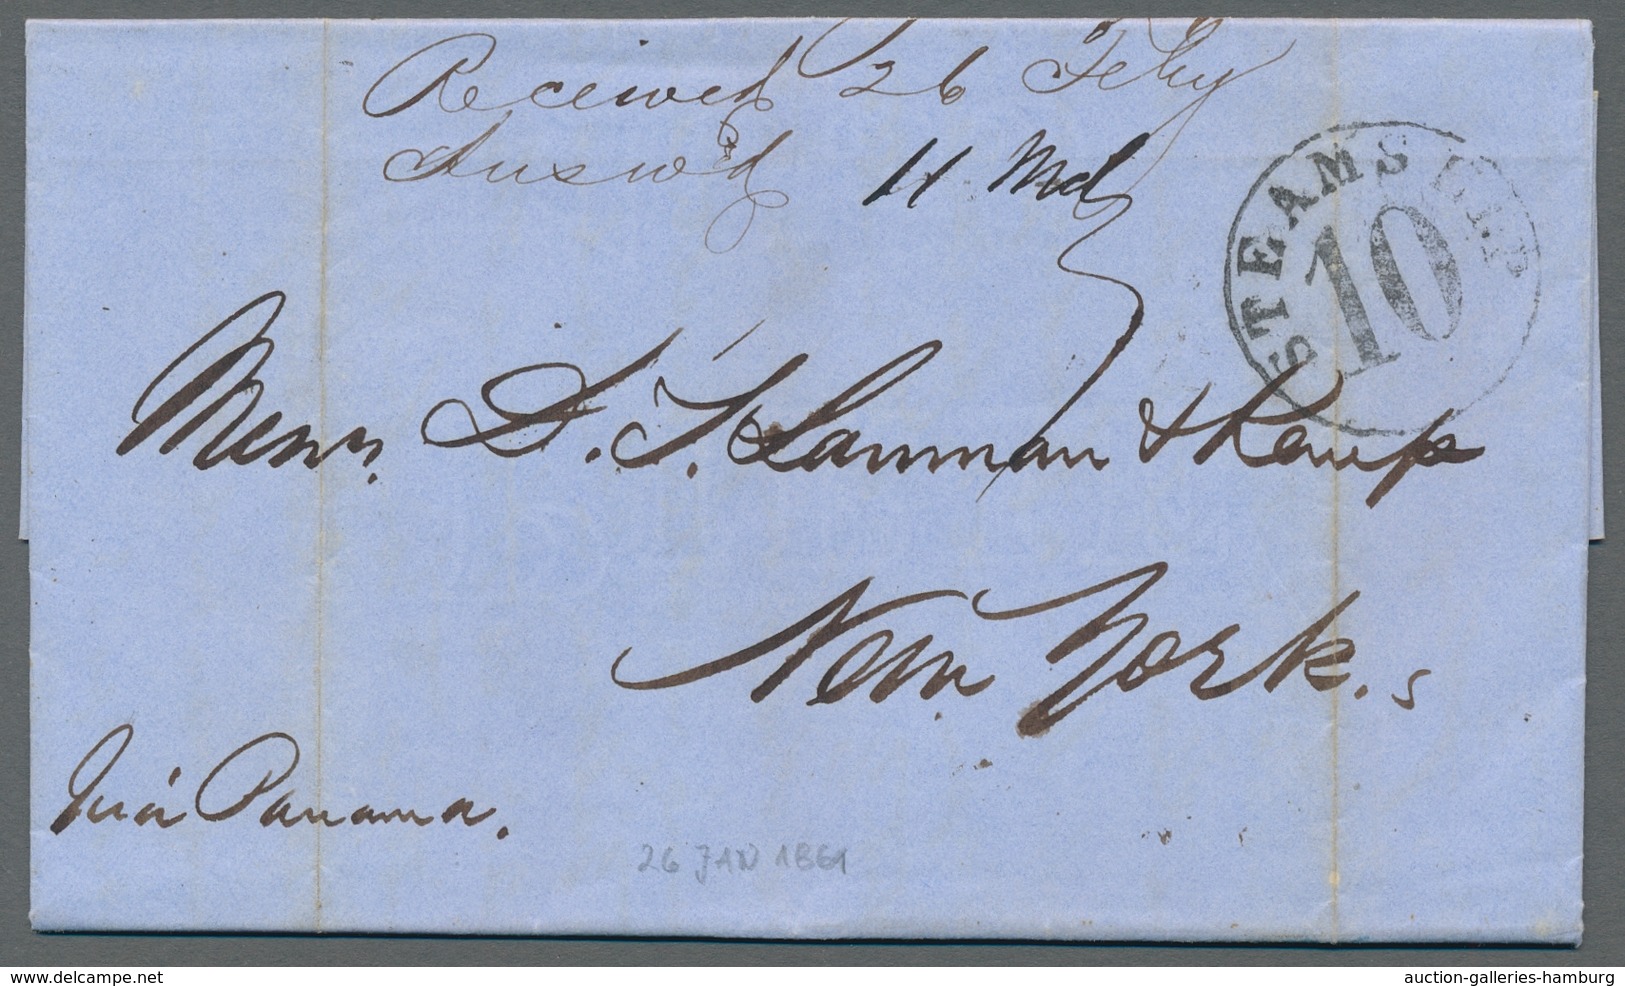 Received 26 Feby
Answd 11 Mch
STEAMSHIP
10
Messrs. D. T. Lanman & Kemp
New York.
Via Panama.
26 JAN 1861
www.delcampe.net
auction-galleries-hamburg